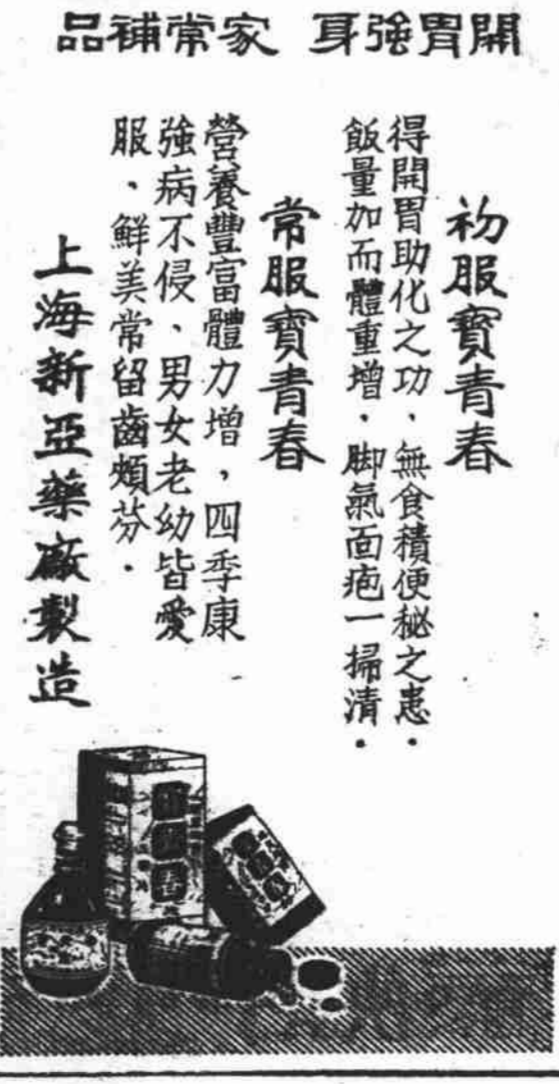 開胃強身 家常補品
初服寳青春
得開胃助化之功、無食積便秘之患．
飯量加而體重增、脚氣面疱一掃清．
常服寳青春
營養豐富體力增，四季康
強病不侵、男女老幼皆愛
服、鮮美常留齒頰芬．
上海新亞藥廠製造